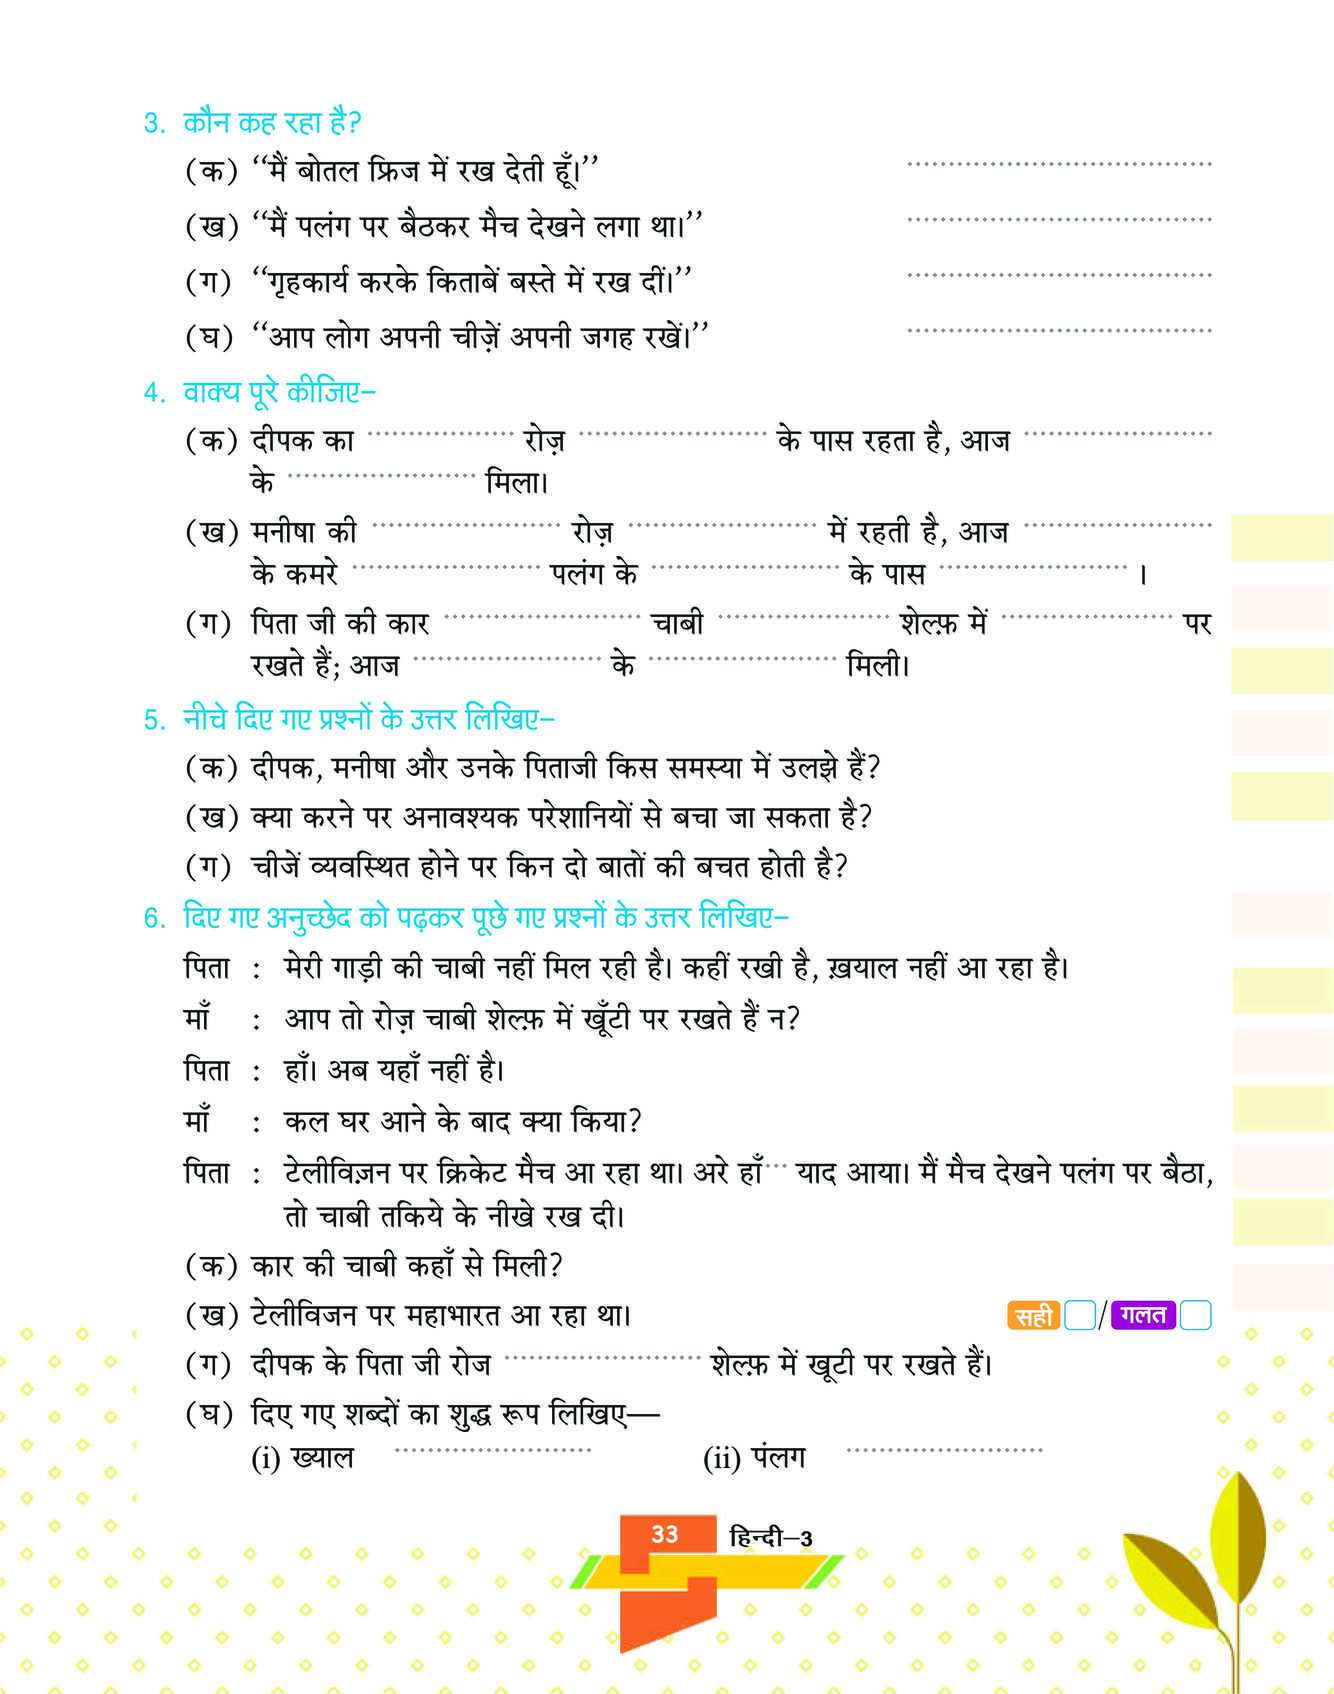 3. कौन कह रहा है?
(क) ‘‘मैं बोतल फ्रिज में रख देती हूँ।’’ ....................................
(ख) ‘‘मैं पलंग पर बैठकर मैच देखने लगा था।’’ ....................................
(ग) ‘‘गृहकार्य करके किताबें बस्ते में रख दीं।’’ ....................................
(घ) ‘‘आप लोग अपनी चीज़ें अपनी जगह रखें।’’ ....................................
4. वाक्य पूरे कीजिए–
(क) दीपक का .................. रोज़ ....................... के पास रहता है, आज .......................
के ....................... मिला।
(ख) मनीषा की ....................... रोज़ ....................... में रहती है, आज .......................
के कमरे ....................... पलंग के ....................... के पास ....................... ।
(ग) पिता जी की कार ........................ चाबी ..................... शेल्फ़ में ..................... पर
रखते हैं; आज ....................... के ....................... मिली।
5. नीचे दिए गए प्रश्नों के उत्तर लिखिए–
(क) दीपक, मनीषा और उनके पिताजी किस समस्या में उलझे हैं?
(ख) क्या करने पर अनावश्यक परेशानियों से बचा जा सकता है?
(ग) चीजें व्यवस्थित होने पर किन दो बातों की बचत होती है?
6. दिए गए अनुच्छेद को पढ़कर पूछे गए प्रश्नों के उत्तर लिखिए–
पिता : मेरी गाड़ी की चाबी नहीं मिल रही है। कहीं रखी है, ख़याल नहीं आ रहा है।
माँ : आप तो रोज़ चाबी शेल्फ़ में खूँटी पर रखते हैं न?
पिता : हाँ। अब यहाँ नहीं है।
माँ : कल घर आने के बाद क्या किया?
पिता : टेलीविज़न पर क्रिकेट मैच आ रहा था। अरे हाँ... याद आया। मैं मैच देखने पलंग पर बैठा,
तो चाबी तकिये के नीखे रख दी।
(क) कार की चाबी कहाँ से मिली?
(ख) टेलीविजन पर महाभारत आ रहा था। सही / गलत
(ग) दीपक के पिता जी रोज ........................ शेल्फ़ में खूटी पर रखते हैं।
(घ) दिए गए शब्दों का शुद्ध रूप लिखिए—
(i) ख्याल ........................ (ii) पंलग ........................
33 हिन्दी–3